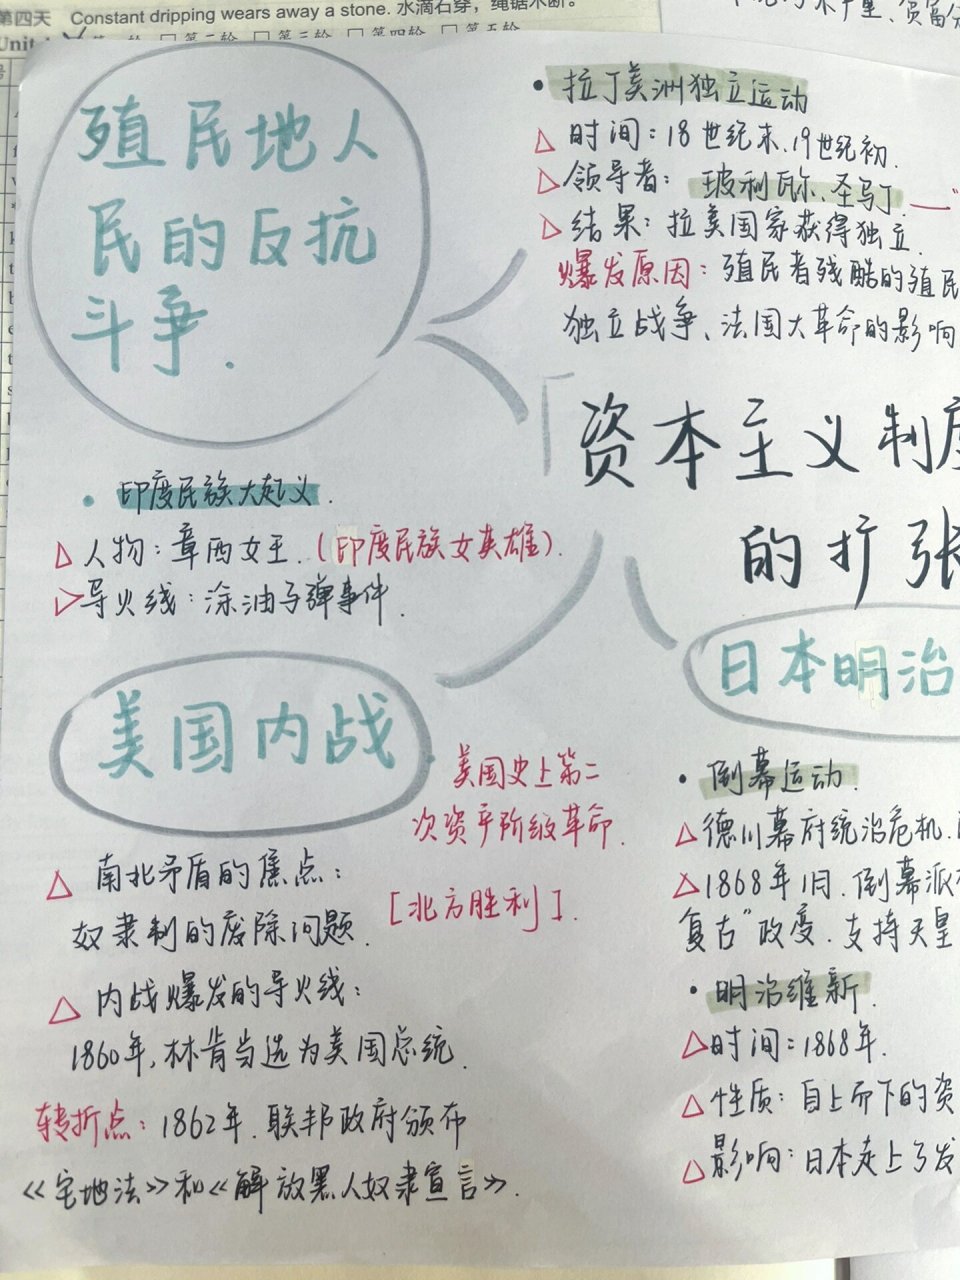 第四天 Constant dripping wears away a stone. 水滴石穿，绳锯木断。
殖民地人
民的反抗
斗争.
• 拉丁美洲独立运动
△ 时间：18世纪末、19世纪初.
△ 领导者：玻利瓦尔、圣马丁.
△ 结果：拉美国家获得独立.
爆发原因：殖民者残酷的殖民
独立战争、法国大革命的影响
资本主义制度
的扩张
• 印度民族大起义.
△ 人物：章西女王.（印度民族女英雄）.
△ 导火线：涂油子弹事件.
美国内战
美国史上第二
次资产阶级革命.
[北方胜利].
△ 南北矛盾的焦点：
奴隶制的废除问题.
△ 内战爆发的导火线：
1860年,林肯当选为美国总统.
转折点：1862年.联邦政府颁布
《宅地法》和《解放黑人奴隶宣言》.
日本明治
• 倒幕运动.
△ 德川幕府统治危机.
△ 1868年1月.倒幕派
复古”政变.支持天皇
• 明治维新.
△ 时间：1868年.
△ 性质：自上而下的资
△ 影响：日本走上了发